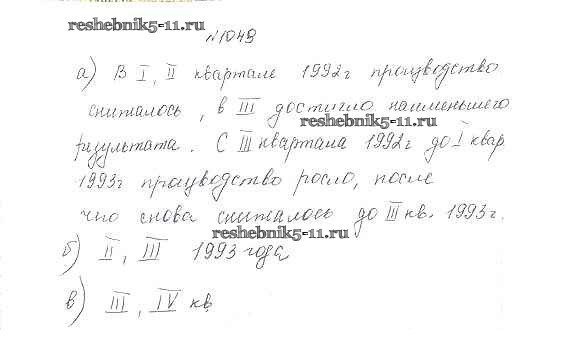 reshebnik5-11.ru
№1049
а) В I, II квартале 1992г производство
снижалось, в III достигло наименьшего
reshebnik5-11.ru
результата. С III квартала 1992г до I квар.
1993г производство росло, после
чего снова снижалось до III кв. 1993г.
reshebnik5-11.ru
б) II, III 1993 года
в) III, IV кв